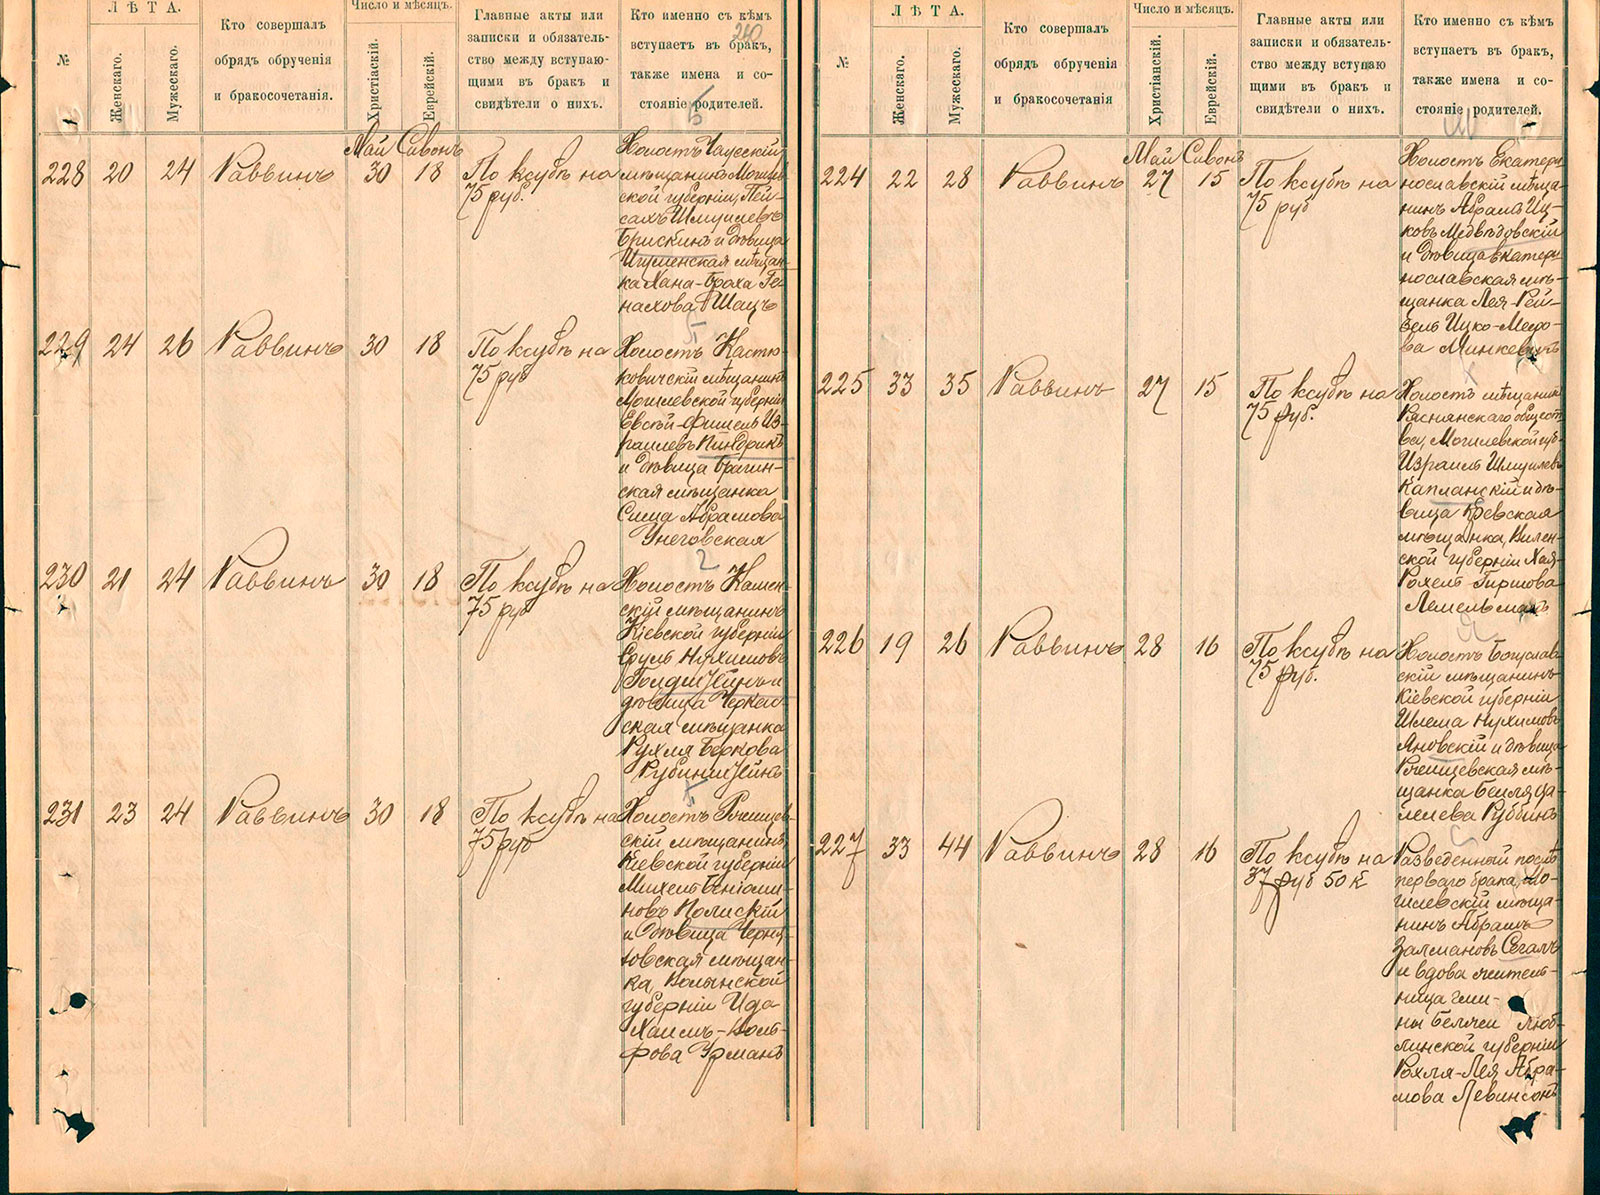 №
ЛѢТА.
Женскаго.
Мужескаго.
Кто совершалъ
обрядъ обрученія
и бракосочетанія.
Число и мѣсяцъ.
Христіаскій.
Еврейскій.
Главные акты или
записки и обязатель-
ство между вступаю-
щими въ бракъ и
свидѣтели о нихъ.
Кто именно съ кѣмъ
вступаетъ въ бракъ,
также имена и со-
стояніе родителей.
Май Сивонъ
228 20 24 Раввинъ 30 18 По ксубѣ на
75 руб.
Холостъ Чаусскій
мѣщанинъ Могилев
ской губерніи, Пей-
сахъ Шмуилевъ
Брискинъ и дѣвица
Игуменская мѣщан-
ка Хана-Браха Ге-
нахова Шацъ
229 24 26 Раввинъ 30 18 По ксубѣ на
75 руб
Холостъ Костю-
ковичскій мѣщанинъ
Могилевской губерніи
Евсѣй-Фишель Из-
раилевъ Пиндрикъ
и дѣвица Брагин-
ская мѣщанка
Сима Абрамова
Унеговская
230 21 24 Раввинъ 30 18 По ксубѣ на
75 руб
Холостъ Камен-
скій мѣщанинъ
Кіевской губерніи
Сруль Нухимовъ
Голдштейнъ и
дѣвица Черкас-
ская мѣщанка
Рухля Беркова
Рубинштейнъ
231 23 24 Раввинъ 30 18 По ксубѣ на
75 руб
Холостъ Ржищев-
скій мѣщанинъ,
Кіевской губерніи
Михель Беніами-
новъ Полискій
и дѣвица Черня-
ховская мѣщан-
ка, Волынской
губерніи Ида
Хаимъ-Воль-
фова Урманъ
№
ЛѢТА.
Женскаго.
Мужескаго.
Кто совершалъ
обрядъ обрученія
и бракосочетанія
Число и мѣсяцъ.
Христіанскій.
Еврейскій.
Главные акты или
записки и обязатель-
ство между вступаю
щими въ бракъ и
свидѣтели о нихъ.
Кто именно съ кѣмъ
вступаетъ въ бракъ,
также имена и со-
стояніе родителей.
Май Сивонъ
224 22 28 Раввинъ 27 15 По ксубѣ на
75 руб
Холостъ Екатери
нославскій мѣща-
нинъ Абрамъ Иц-
ковъ Медвѣдовскій
и дѣвица Екатери
нославская мѣ-
щанка Лея-Рей-
зель Ицко-Меро-
ва Минкевичъ
225 33 35 Раввинъ 27 15 По ксубѣ на
75 руб.
Холостъ мѣщанинъ
Ряснянскаго общест
ва, Могилевской губ.
Израиль Шмуилевъ
Капланскій и дѣ-
вица Кревская
мѣщанка, Вилен-
ской губерніи Хая-
Рохель Гиршова
Лемельманъ
226 19 26 Раввинъ 28 16 По ксубѣ на
75 руб.
Холостъ Богуслав
скій мѣщанинъ
Кіевской губерніи
Шлема Нухимовъ
Яновскій и дѣвица
Ржищевская мѣ-
щанка Бейля Да-
лиева Рубинъ
227 33 44 Раввинъ 28 16 По ксубѣ на
37 руб 50 к
Разведенный послѣ
перваго брака, Мо-
гилевскій мѣща-
нинъ Абрамъ
Залмановъ Сегалъ
и вдова житель-
ница гми-
ны Белжеи Люб-
линской губерніи
Рохля-Лея Абра-
мова Левинсонъ